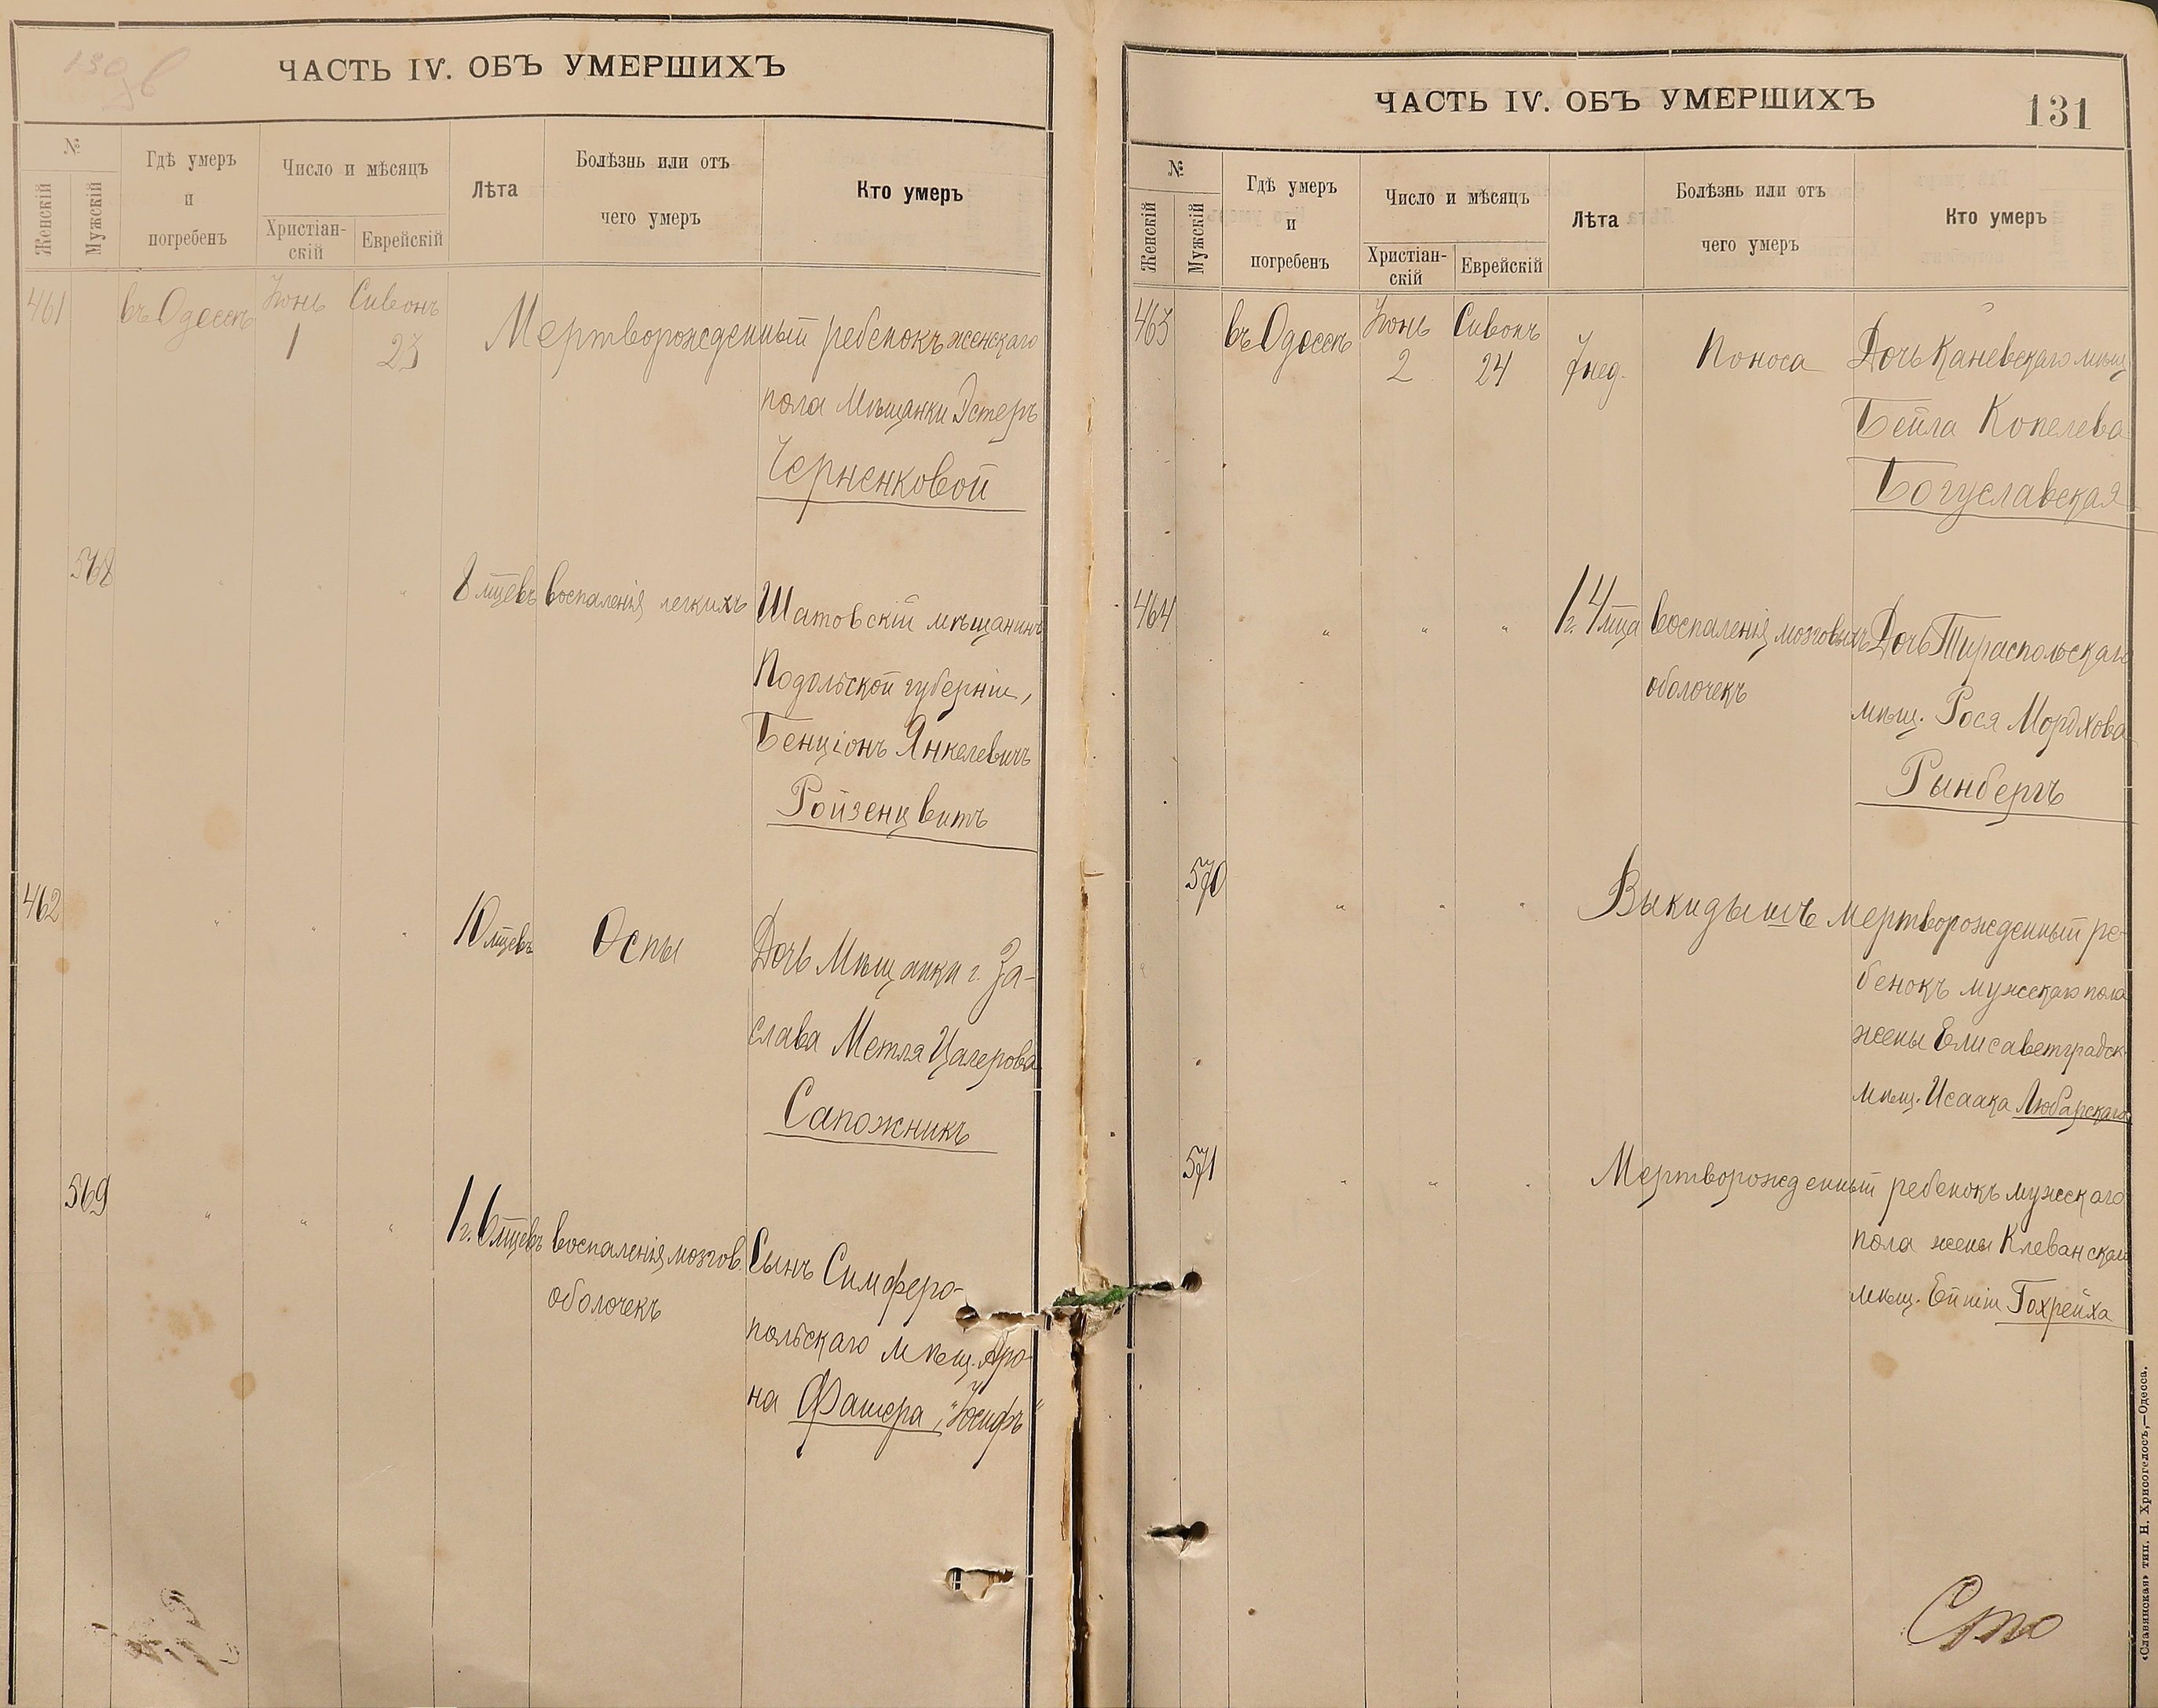 130 об
ЧАСТЬ IV. ОБЪ УМЕРШИХЪ
№
Женскій
Мужскій
Гдѣ умеръ
и
погребенъ
Число и мѣсяцъ
Христіан-
скій
Еврейскій
Лѣта
Болѣзнь или отъ
чего умеръ
Кто умеръ
461 въ Одессѣ Іюнь 1 Сивонъ 23 Мертворожденный ребенокъ женскаго
пола Мѣщанки Эстеръ
Черненковой
568 " " " 8 мцевъ воспаленія легкихъ Шатовскій мѣщанинъ
Подольской губерніи,
Бенціонъ Янкелевичъ
Ройзенцвитъ
462 " " " 10 мцевъ Оспы Дочь Мѣщанки г. За-
слава Метля Цалерова
Сапожникъ
569 " " " 1 г. 6 мцевъ воспаленія мозгов. Сынъ Симферо-
оболочекъ
польскаго мѣщ. Аро-
на Фашера, "Іосифъ"
ЧАСТЬ IV. ОБЪ УМЕРШИХЪ
131
№
Женскій
Мужскій
Гдѣ умеръ
и
погребенъ
Число и мѣсяцъ
Христіан-
скій
Еврейскій
Лѣта
Болѣзнь или отъ
чего умеръ
Кто умеръ
463 въ Одессѣ Іюнь 2 Сивонъ 24 7 нед. Поноса Дочь Каневскаго мѣщ
Бейла Копелева
Богуславская
464 " " " 1 г. 4 мца воспаленія мозговыхъ Дочь Тираспольскаго
оболочекъ
мѣщ. Рося Мордхова
Рынбергъ
570 " " " Выкидышъ мертворожденный ре-
бенокъ мужскаго пола
жены Елисаветградск.
мѣщ. Исаака Любарскаго
571 " " " Мертворожденный ребенокъ мужскаго
пола жены Клеванскаго
мѣщ. Гохрейха
Сто
«Славянская» тип. Н. Хрисогелосъ,—Одесса.